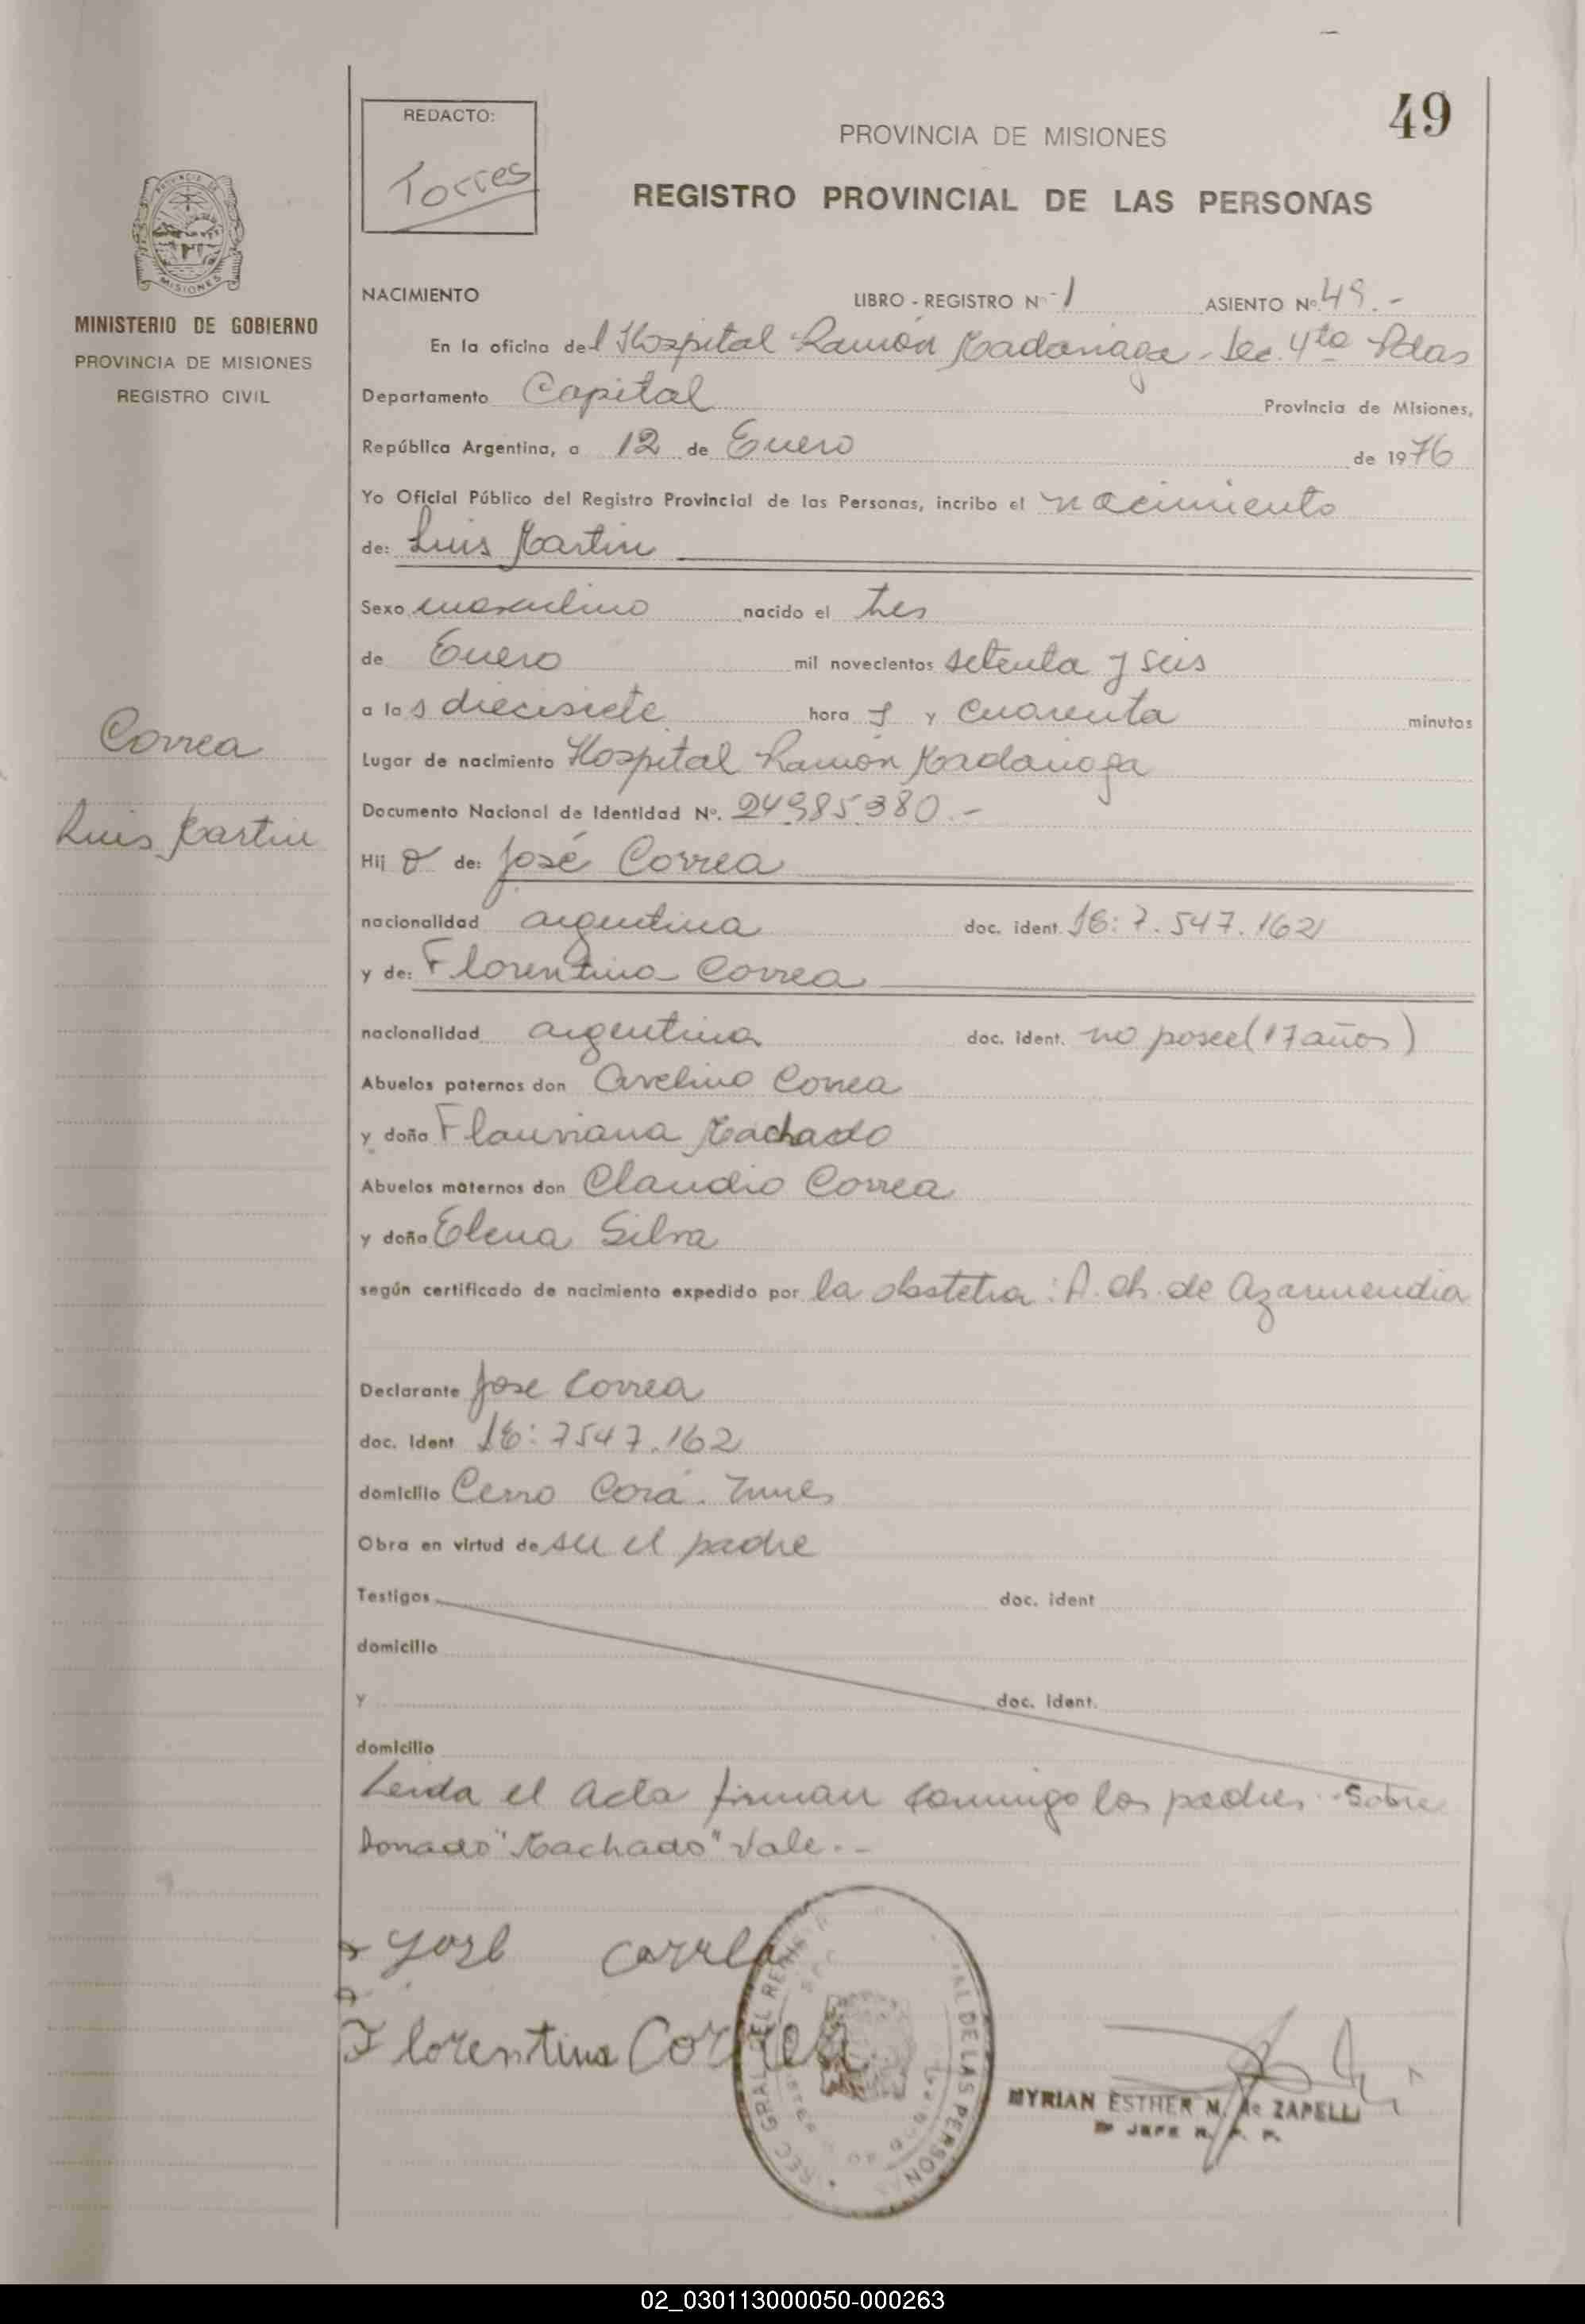 49
REDACTO:
Torres
PROVINCIA DE MISIONES
REGISTRO PROVINCIAL DE LAS PERSONAS
MISIONES
MINISTERIO DE GOBIERNO
PROVINCIA DE MISIONES
REGISTRO CIVIL
NACIMIENTO LIBRO - REGISTRO Nº 1 ASIENTO Nº 49.-
En la oficina del Hospital Ramón Madariaga - Sec. 4ta Pdas
Departamento Capital Provincia de Misiones,
República Argentina, a 12 de Enero de 1976
Yo Oficial Público del Registro Provincial de las Personas, incribo el nacimiento
de: Luis Martin
Sexo masculino nacido el tres
de Enero mil novecientos setenta y seis
a las diecisiete horas y cuarenta minutos
Correa
Lugar de nacimiento Hospital Ramón Madariaga
Documento Nacional de Identidad Nº. 24.985.380.-
Luis Martin
Hijo de: José Correa
nacionalidad argentina doc. ident. LE: 7.547.162
y de: Florentina Correa
nacionalidad argentina doc. ident. no posee (17 años)
Abuelos paternos don Avelino Correa
y doña Machado
Abuelos maternos don Claudio Correa
y doña Elena Silva
según certificado de nacimiento expedido por la obstetra: A. Ch. de Azarmendia
Declarante Jose Correa
doc. Ident LE: 7547.162
domicilio Cerro Corá.
Obra en virtud de ser el padre
Testigos doc. ident
domicilio
y doc. ident.
domicilio
Leida el acta firman conmigo los padres. Sobre
borrado "Machado" Vale.-
José Correa
Florentina Correa
REG GRAL DEL REGIS AL DE LAS PERSONAS
MYRIAN ESTHER M. de ZAPELLI
JEFE R. P. P.
02_030113000050-000263